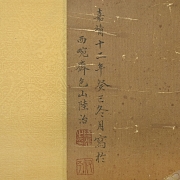 嘉靖十二年癸巳冬月寫於
西畹包山陸治